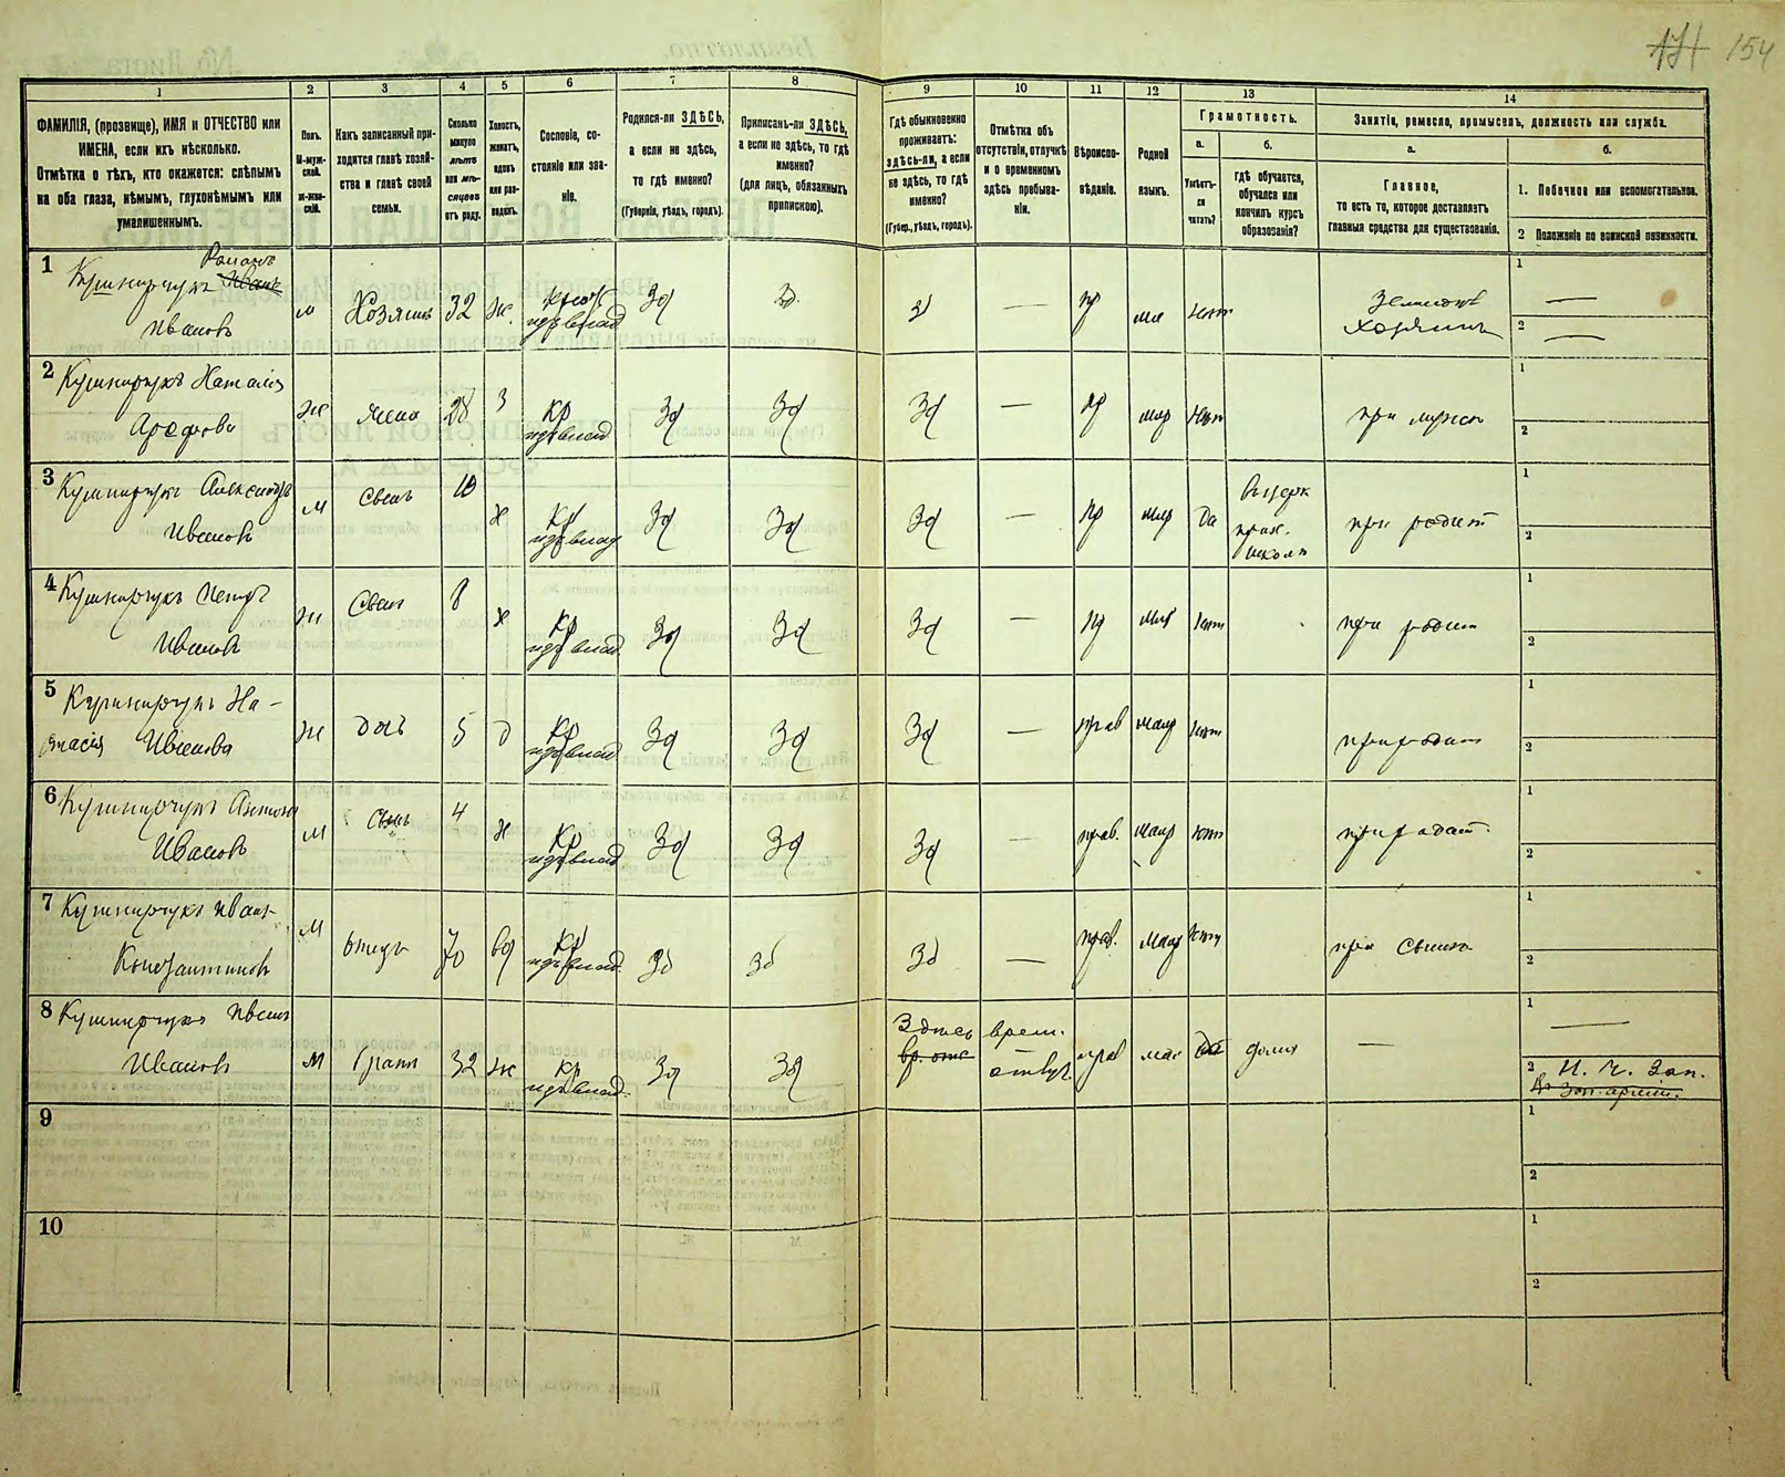 154
1
2
3
4
5
6
7
8
9
10
11
12
13
14
ФАМИЛІЯ, (прозвище), ИМЯ и ОТЧЕСТВО или
ИМЕНА, если ихъ нѣсколько.
Отмѣтка о тѣхъ, кто окажется: слѣпымъ
на оба глаза, нѣмымъ, глухонѣмымъ или
умалишеннымъ.
Полъ.
М-муж-
ской.
ж-жен-
скій.
Какъ записанный при-
ходится главѣ хозяй-
ства и главѣ своей
семьи.
Сколько
минуло
лѣтъ
или мѣ-
сяцевъ
отъ роду.
Холостъ,
женатъ,
вдовъ
или раз-
веденъ.
Сословіе, со-
стояніе или зва-
ніе.
Родился-ли ЗДѢСЬ,
а если не здѣсь,
то гдѣ именно?
(Губернія, уѣздъ, городъ).
Приписанъ-ли ЗДѢСЬ,
а если не здѣсь, то гдѣ
именно?
(для лицъ, обязанныхъ
припискою).
Гдѣ обыкновенно
проживаетъ:
здѣсь-ли, а если
не здѣсь, то гдѣ
именно?
(Губер., уѣздъ, городъ).
Отмѣтка объ
отсутствіи, отлучкѣ
и о временномъ
здѣсь пребыва-
ніи.
Вѣроиспо-
вѣданіе.
Родной
языкъ.
Грамотность.
а.
Умѣетъ-
ли
читать?
б.
гдѣ обучается,
обучался или
кончилъ курсъ
образованія?
Занятіе, ремесло, промыселъ, должность или служба.
а.
Главное,
то есть то, которое доставляетъ
главныя средства для существованія.
б.
1. Побочное или вспомогательное.
2 Положеніе по воинской повинности.
1
Романъ
Кушнирчукъ Иванъ
Ивановъ
м Хозяинъ 32 ж. Зд Зд Зд — пр мал нѣтъ
хозяинъ
1 —
2 —
2 Кушнирчукъ Наталія
ж жена 28 З Кр Зд Зд Зд — пр мар нѣт при мужѣ
1
2
3 Кушнирчукъ Александръ
Ивановъ
м Сынъ 10 х Кр Зд Зд Зд — пр мар да
школѣ
при родит
1
2
4 Кушнирчукъ Петръ
Ивановъ
Сынъ 8 х Кр Зд Зд Зд — пр нѣт при родит
1
2
5 Кушнирчукъ На-
стасія Иванова
ж дочь 5 д Кр Зд Зд Зд — прав малр нѣт при родит
1
2
6 Кушнирчукъ Антонъ
Ивановъ
м сынъ 4 х Кр Зд Зд Зд — прав. малр нѣт при родит.
1
2
7 Кушнирчукъ Иванъ
Константиновъ
м отецъ 70 вд Кр Зд Зд Зд — прав. малр нѣт при сынѣ
1
2
8 Кушнирчукъ Иванъ
Ивановъ
м братъ 32 ж кр Зд Зд
Здѣсь врем.
отлуч. прав мал да дома —
1 —
2 Н. Ч. Зап.
9
1
2
10
1
2